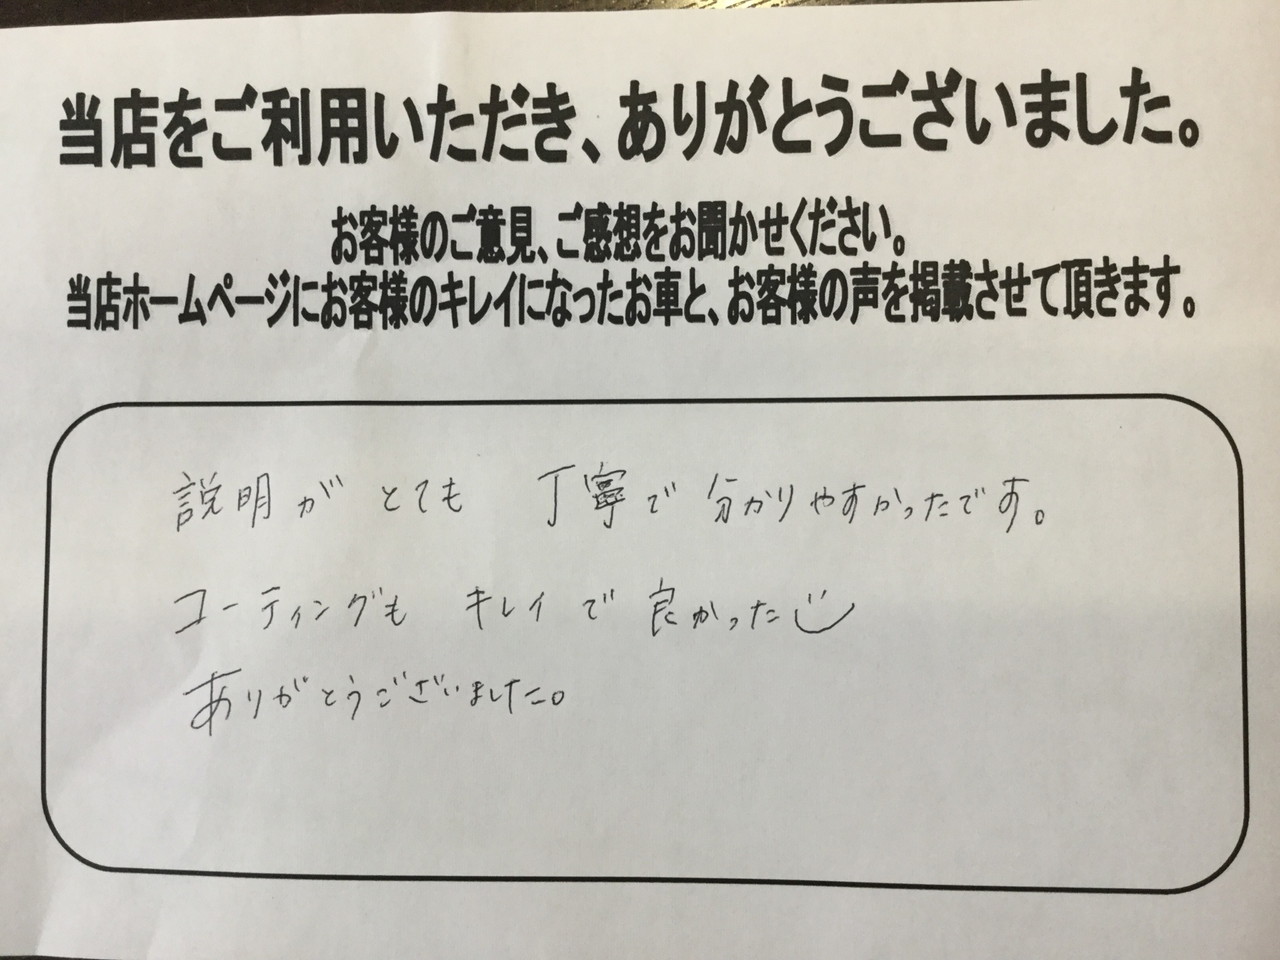 当店をご利用いただき、ありがとうございました。
お客様のご意見、ご感想をお聞かせください。
当店ホームページにお客様のキレイになったお車と、お客様の声を掲載させて頂きます。
説明がとても 丁寧で分かりやすかったです。
コーティングも キレイで良かった
ありがとうございました。